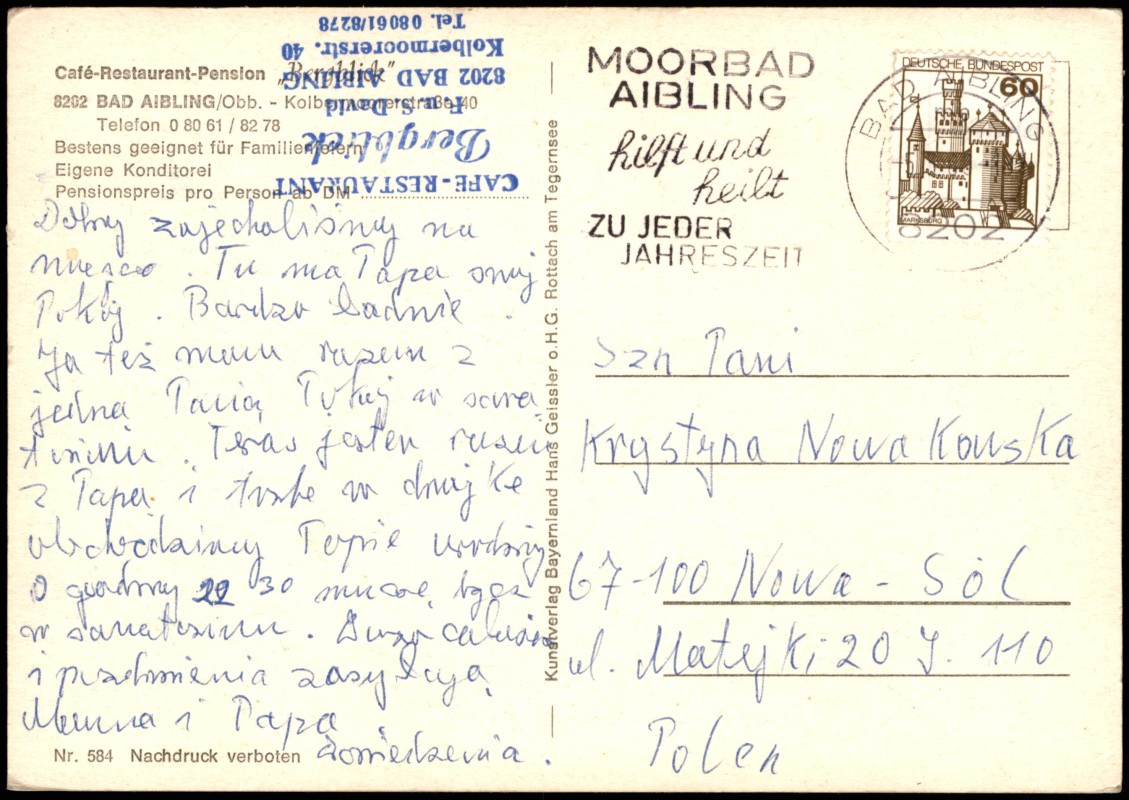 Café-Restaurant-Pension „Bergblick"
8202 BAD AIBLING/Obb. - Kolbermoorerstraße 40
Telefon 0 80 61 / 82 78
Bestens geeignet für Familienfeiern
Eigene Konditorei
Pensionspreis pro Person ab DM
CAFE-RESTAURANT
Bergblick
F. u. S. David
8202 BAD AIBLING
Kolbermoorerstr. 40
Tel. 08061/8278
zajechaliśmy na
miejsce. Tu ma Papa swój
Pokój. Bardzo ładnie.
Ja też mam razem z
jedną Panią Pokój w sana
torium. Teraz jestem razem
z Papą i trochę w
obchodzimy urodziny
O godziny 22 30 muszę być
w sanatorium. Dużo całusów
i pozdrowienia zasyłają
Mamma i Papa
dowiedzenia.
Nr. 584 Nachdruck verboten
Kunstverlag Bayernland Hans Geissler o.H.G. Rottach am Tegernsee
MOORBAD
AIBLING
hilft und
heilt
ZU JEDER
JAHRESZEIT
BAD AIBLING
8202
DEUTSCHE BUNDESPOST
60
MARKSBURG
Szn Pani
Krystyna Nowakowska
67-100 Nowa-Sól
ul. Matejki 20 J. 110
Polen